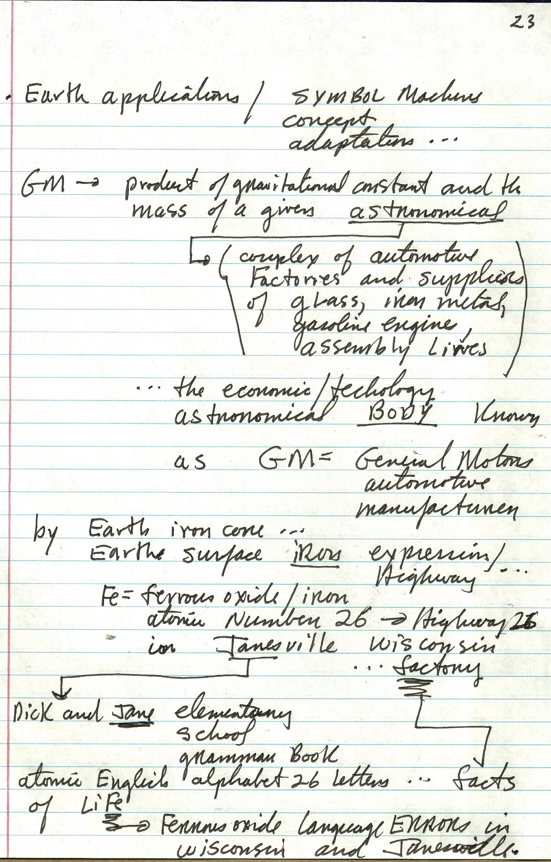 23
. Earth applications / SYMBOL Machine
concept
adaptation ...
GM → product of gravitational constant and the
mass of a given astronomical
(complex of automotive
Factories and suppliers
of glass, iron metal,
gasoline engine,
assembly Lines)
... the economic/techology
astronomical BODY Known
as GM = General Motors
automotive
manufacturer
by Earth iron core ...
Earths surface iron expression/
Highway ...
Fe = ferrous oxide / iron
atomic Number 26 → Highway 26
in Janesville Wisconsin
... factory
Dick and Jane elementary
school
grammar Book
atomic English alphabet 26 letters ... facts
of LiFe
→ Ferrous oxide language ERRORS in
wisconsin and Janesville.